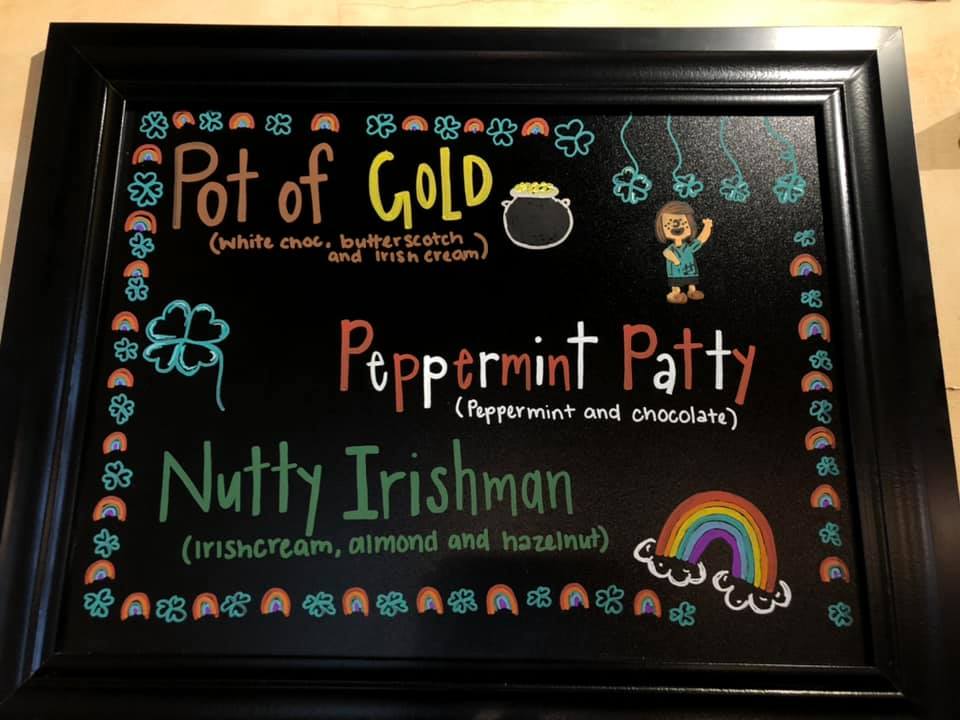 Pot of GOLD
(White choc, butterscotch
and Irish cream)
Peppermint Patty
(Peppermint and chocolate)
Nutty Irishman
(Irishcream, almond and hazelnut)